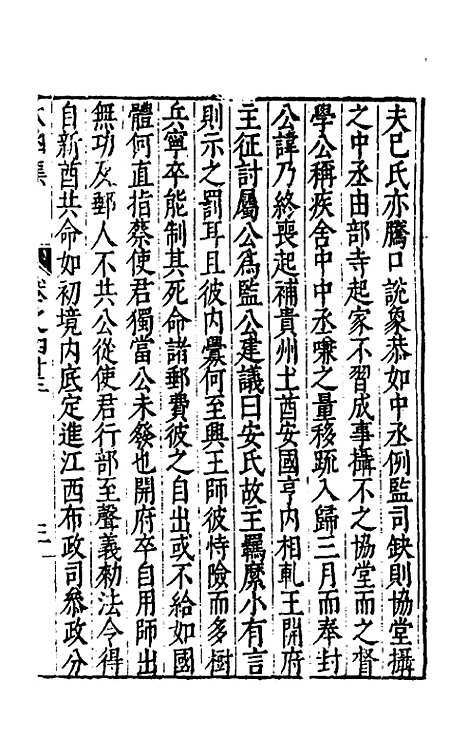 夫已氏亦騰口說象恭如中丞例監司缺則協堂攝
之中丞由部寺起家不習成事攝不之協堂而之督
學公稱疾舍中中丞嗛之量移䟽入歸三月而奉封
公諱乃終喪起補貴州土酋安國亨内相軋王開府
主征討屬公為監公建議曰安氏故主羈縻小有言
則示之罰耳且彼内釁何至興王師彼恃險而多樹
兵寧卒能制其死命諸郵費彼之自出或不給如國
體何直指蔡使君獨當公未發也開府卒自用師出
無功及郵人不共公從使君行部至聲義勑法令得
自新酋共命如初境内底定進江西布政司叅政分
太函集
卷之四十三
三